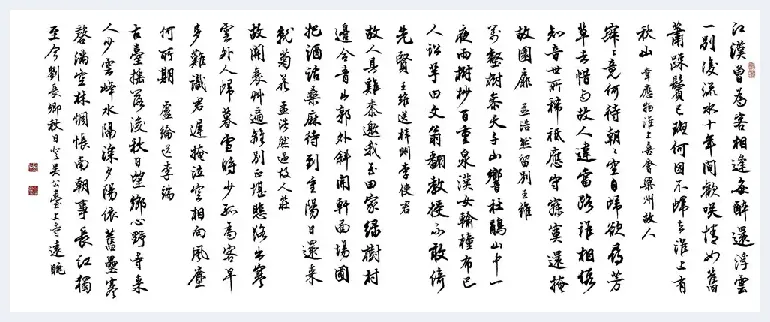 江漢曾為客相逢每醉還浮雲
一別後流水十年間歡咲情如舊
蕭踈鬢已斑何因不歸去淮上有
秋山 韋應物淮上喜會梁州故人
寂寂竟何待朝朝空自歸欲尋芳
草去惜與故人違當路誰相假
知音世所稀祇應守寂寞還掩
故園扉 孟浩然留別王維
萬壑樹參天千山響杜鵑山中一
夜雨樹杪百重泉漢女輸橦布巴
人訟芋田文翁翻教授不敢倚
先賢 王維送梓州李使君
故人具雞黍邀我至田家綠樹村
邊合青山郭外斜開軒面場圃
把酒話桑麻待到重陽日還來
就菊花 孟浩然過故人莊
故關衰艸遍離別正堪悲路出寒
雲外人歸暮雪時少孤為客早
多難識君遲掩泣空相向風塵
何所期 盧綸送李端
古臺搖落後秋日望鄉心野寺來
人少雲峰水隔深夕陽依舊壘寒
磬滿空林惆悵南朝事長江獨
至今 劉長卿秋日登吳公臺上寺遠眺